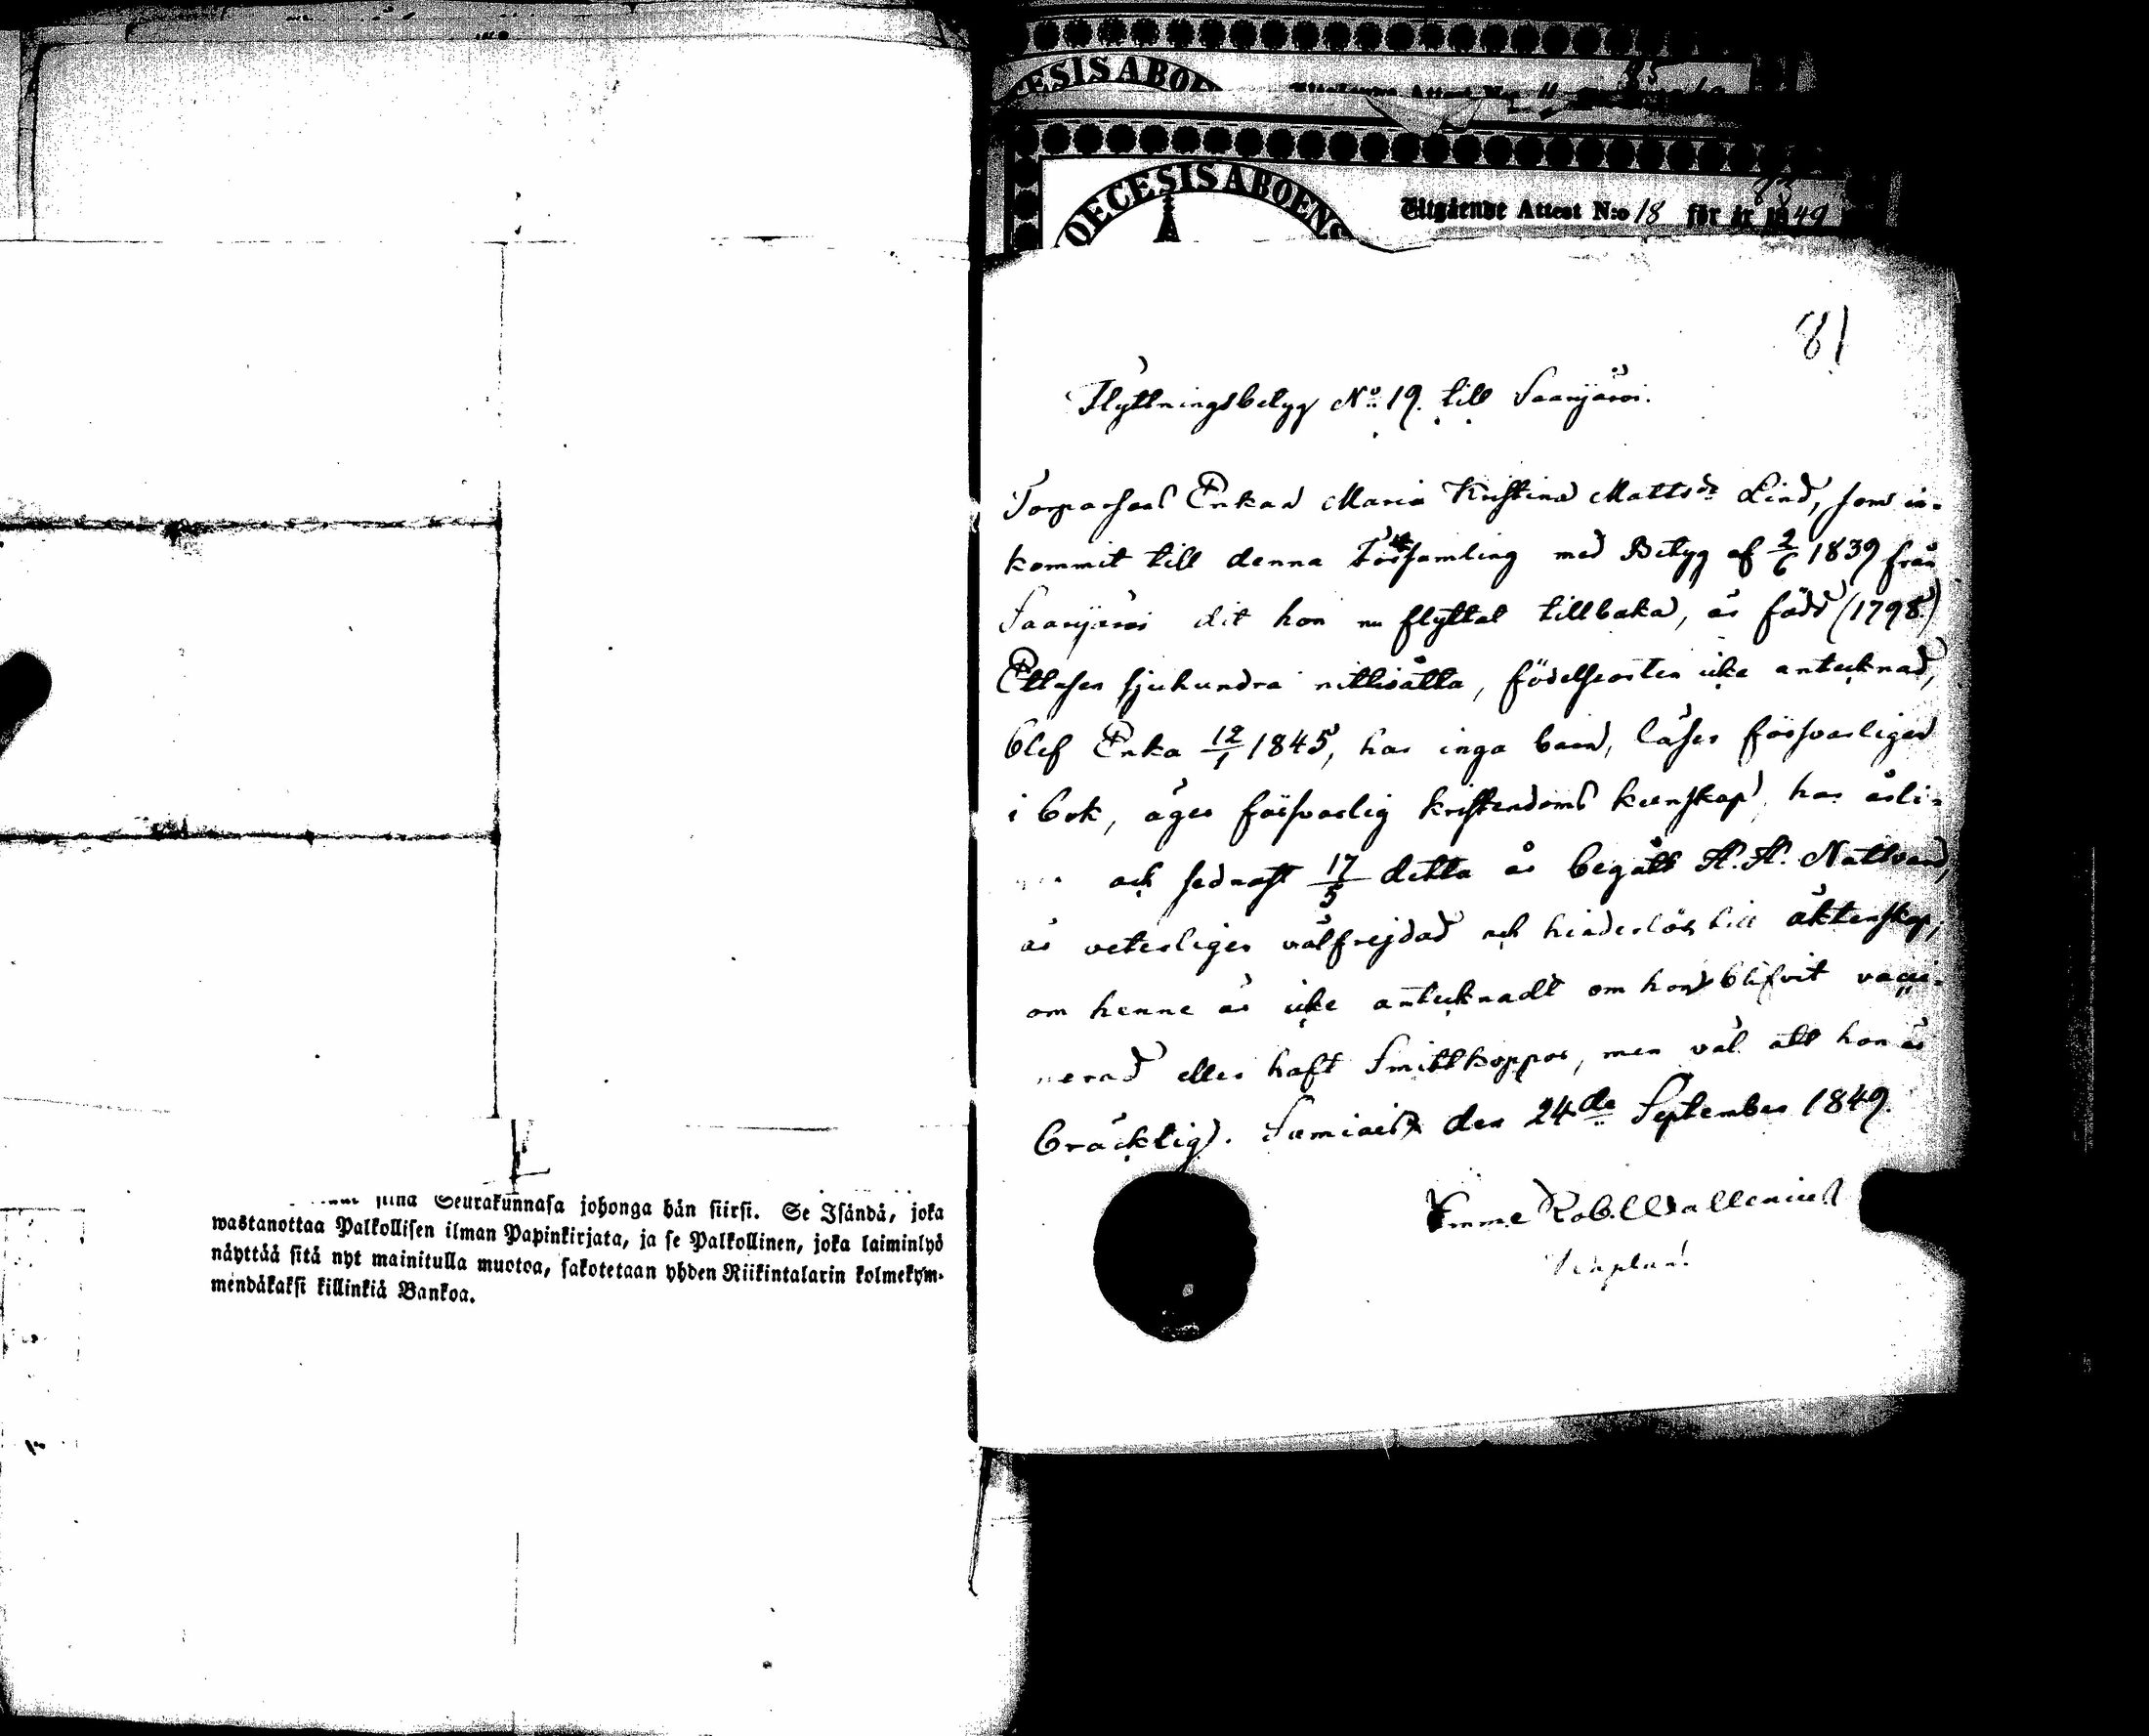 siinä Seurakunnasa johonga hän siirsi. Se Isändä, joka
wastanottaa Palkollisen ilman Papinkirjata, ja se Palkollinen, joka laiminlyö
näyttää sitä nyt mainitulla muotoa, sakotetaan yhden Riikintalarin kolmekym-
mendäkaksi killinkiä Bankoa.
ESIS ABOE
OECESIS ABOENS
Utgående Attest N:o 18 för år 1849
81
Flyttningsbetyg No 19. till Saarijärvi.
Torpars Enkan Maria Kristina Mattsdr Lind, som in-
kommit till denna Församling med Betyg af 2/6 1839 från
Saarijärvi dit hon nu flyttat tillbaka, är född (1798)
Ettusen sjuhundra nittioåtta, födelseorten icke antecknad,
blef Enka 12/1 1845, har inga barn, läser försvarligen
i bok, äger försvarlig kristendoms kunskap, har årli-
och sednast 17/5 detta år begått H. H. Nattvard,
är veterligen välfrejdad och hinderlös till äktenskap;
om henne är icke antecknadt om hon blifvit vacci-
nerad eller haft Smittkoppor, men väl att hon är
bräcklig. Sumiais den 24de September 1849.
Emme Rob. Wallenius
Kaplan.